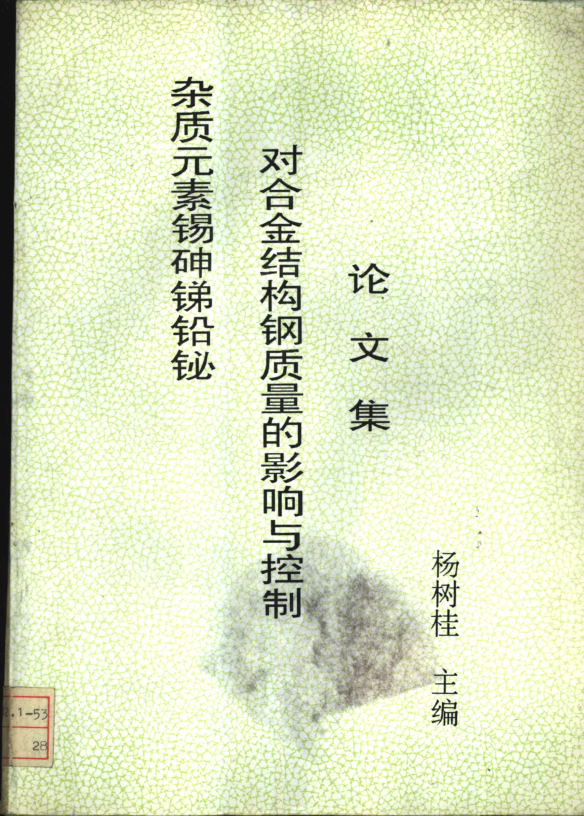 杂质元素锡砷锑铅铋
对合金结构钢质量的影响与控制
论文集
杨树桂 主编
.1-53
28